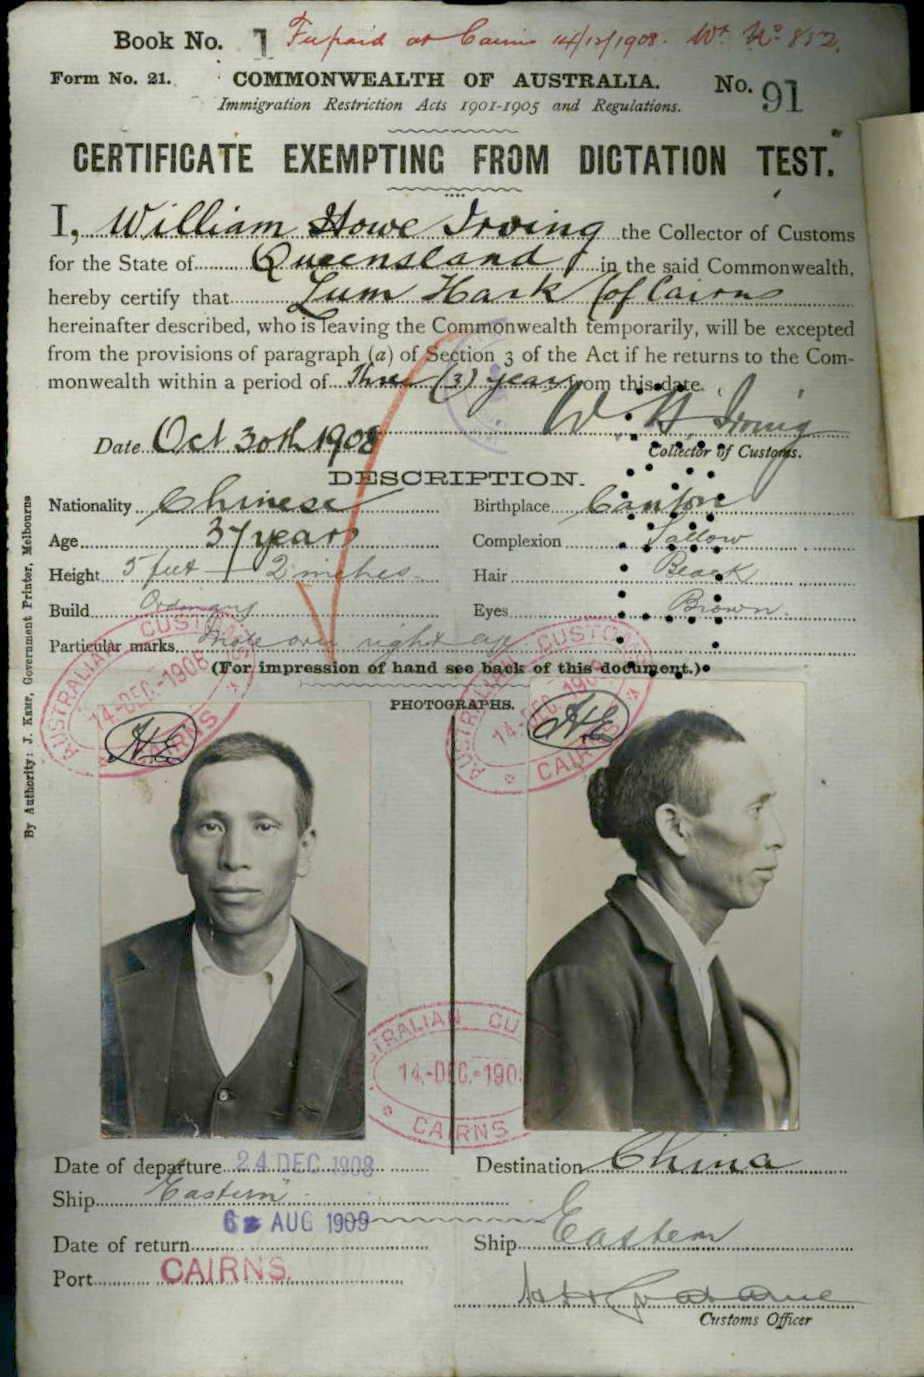 Book No. 1 Fee paid at Cairns 14/12/1908. No. 852.
Form No. 21. COMMONWEALTH OF AUSTRALIA. No. 91
Immigration Restriction Acts 1901-1905 and Regulations.
CERTIFICATE EXEMPTING FROM DICTATION TEST.
I, William Howe Irving the Collector of Customs
for the State of Queensland in the said Commonwealth,
hereby certify that Lum Hask (of Cairns
hereinafter described, who is leaving the Commonwealth temporarily, will be excepted
from the provisions of paragraph (a) of Section 3 of the Act if he returns to the Com-
monwealth within a period of Three (3) years from this date.
W. H. Irving
Date Oct 30th 1908
Collector of Customs.
DESCRIPTION.
Nationality Chinese Birthplace Canton
Age 37 years Complexion Sallow
Height 5 feet 2 inches Hair Black
Build Ordinary Eyes Brown.
Particular marks Mole over right eye
(For impression of hand see back of this document.)
PHOTOGRAPHS.
AUSTRALIAN CUSTOMS
14-DEC.-1908
CAIRNS
AUSTRALIAN CUSTOMS
14-DEC.-1908
CAIRNS
AUSTRALIAN CU
14.-DEC.-190
CAIRNS
Date of departure 24 DEC 1908 Destination China
Ship "Eastern"
6 AUG 1909
Date of return Ship Eastern
Port CAIRNS.
Customs Officer
By Authority: J. Kemp, Government Printer, Melbourne